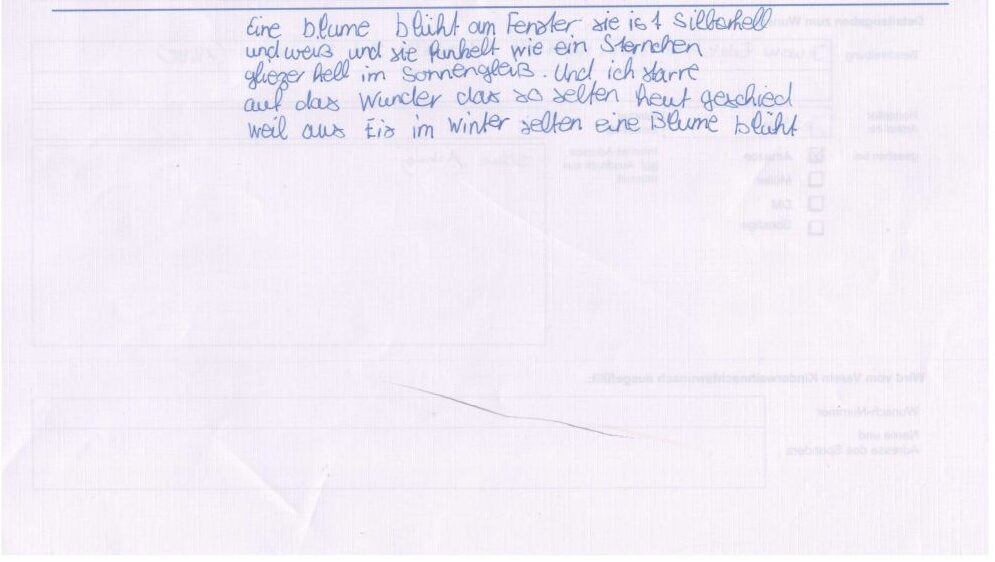 Eine blume blüht am Fenster sie ist Silberhell
und weiß und sie funkelt wie ein Sternchen
gliezer hell im Sonnengleiß. Und ich starre
auf das Wunder das so selten heut geschied
weil aus Eis im winter selten eine Blume blüht
Detailangaben zum Wunsch
Beschreibung
Hersteller
gesehen bei
Amazon
Müller
DM
Sonstige
Internet Adresse
ggf. Ausdruck aus
Internet
Wird vom Verein Kinderweihnachtswunsch ausgefüllt:
Wunsch-Nummer
Name und
Adresse des Spenders